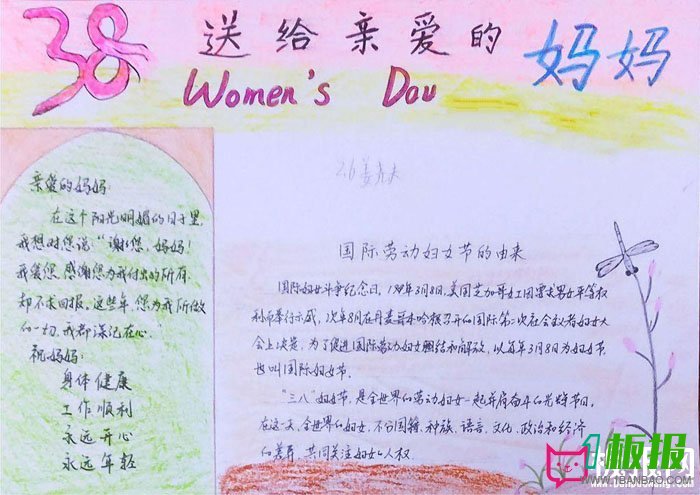 38 送给亲爱的妈妈
Women's Dau
亲爱的妈妈:
在这个阳光明媚的日子里,
我想对您说:“谢谢您,妈妈!
我爱您,感谢您为我付出的所有,
却不求回报,这些年,您为我所做
的一切,我都深记在心.”
祝妈妈:
身体健康
工作顺利
永远开心
永远年轻
国际劳动妇女节的由来
国际妇女斗争纪念日,1909年3月8日,美国芝加哥女工因要求男女平等权
利而举行示威,次年8月在丹麦哥本哈根召开的国际第二次社会主义者妇女大
会上决定,为了促进国际劳动妇女团结和解放,以每年3月8日为妇女节,
也叫国际妇女节.
“三八”妇女节,是全世界的劳动妇女一起并肩奋斗的光辉节日,
在这一天,全世界的妇女,不分国籍、种族、语言、文化、政治和经济
的差异,共同关注妇女的人权
1板报
WWW.1BANBAO.COM